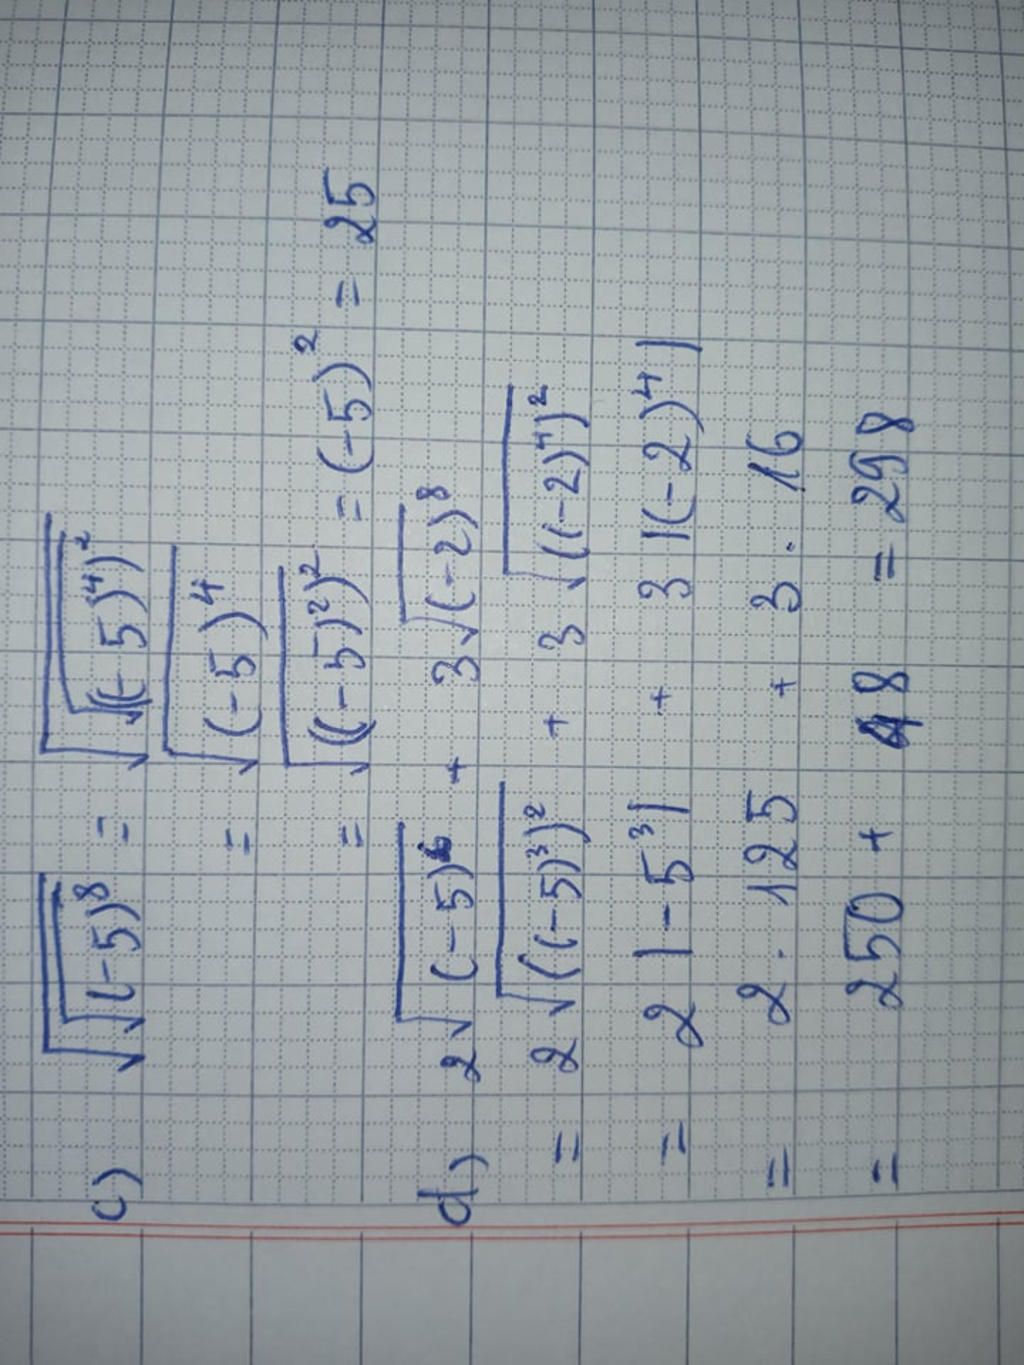 c) √√(-5)⁸ = √√((-5)⁴)²
= √(-5)⁴
= √((-5)²)² = (-5)² = 25
d) 2√(-5)⁶ + 3√(-2)⁸
= 2√((-5)³)² + 3√((-2)⁴)²
= 2|-5³| + 3|(-2)⁴|
= 2.125 + 3.16
= 250 + 48 = 298